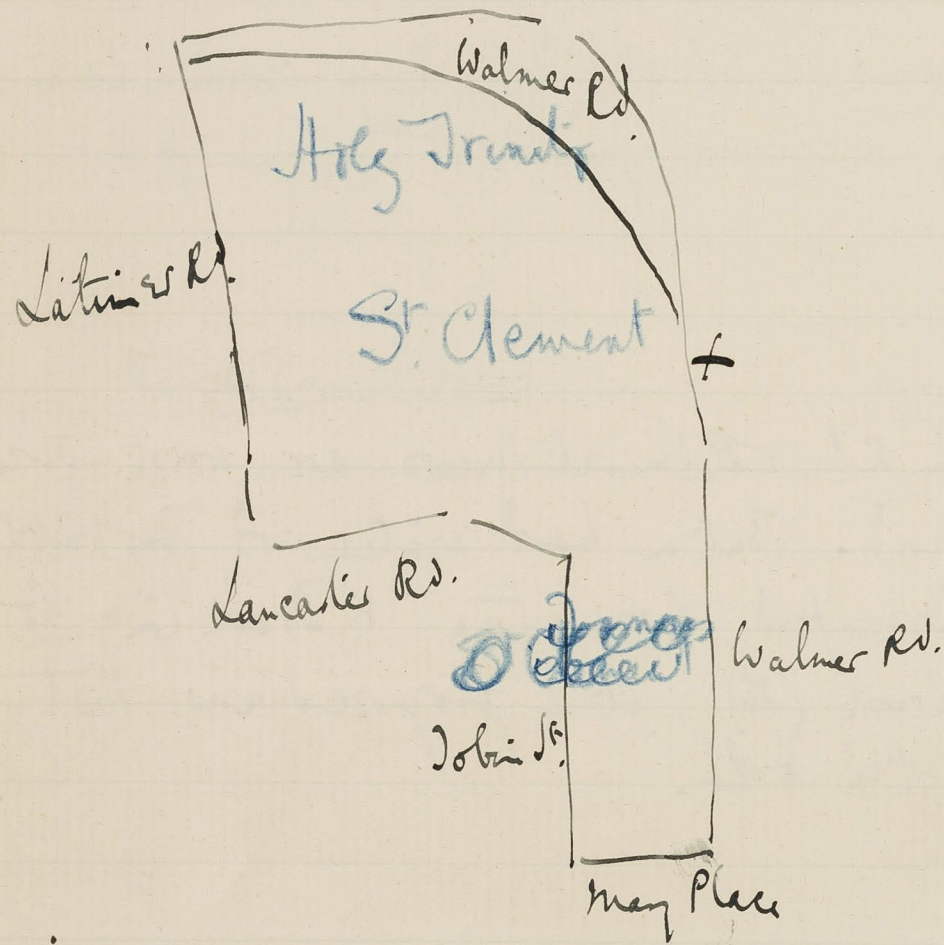 Walmer Rd.
Holy Trinity
Latimer Rd.
St. Clement
Lancaster Rd.
Walmer Rd.
Tobin St.
May Place